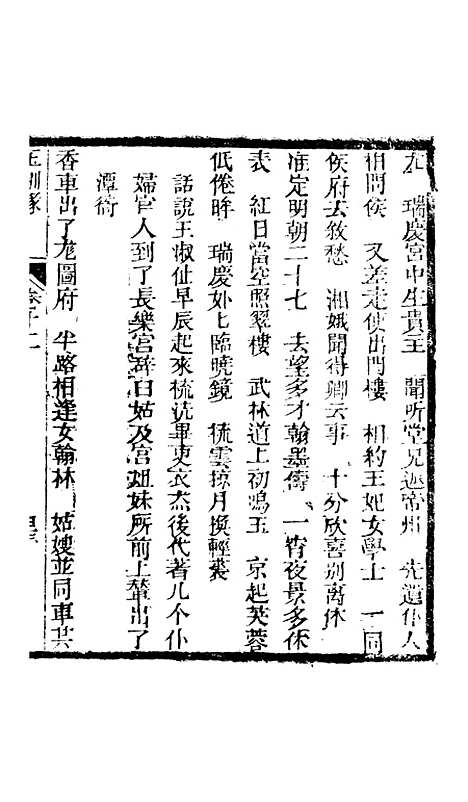 瑞慶宮中生貴主　聞聽堂兄逝常州　先遣仆人
相問侯　又差走使出門樓　相約王妃女學士　一同
侯府去敘愁　湘娥聞得卿云事　十分欣喜別离休
准定明朝二十七　去望多才翰墨儔　一宵夜景多休
表　紅日當空照翠樓　武林道上初鳴玉　京起芙蓉
低倦眸　瑞慶妝匕臨曉鏡　梳雲掠月換輕裘
話說王淑仙早辰起來梳洗畢更衣杰後代著几个仆
婦官人到了長樂宮辞白姑及宮妞妹所前上輦出了
潭府
香車出了龙圖府　半路相逢女翰林　姑嫂並同車共
玉釧緣　卷